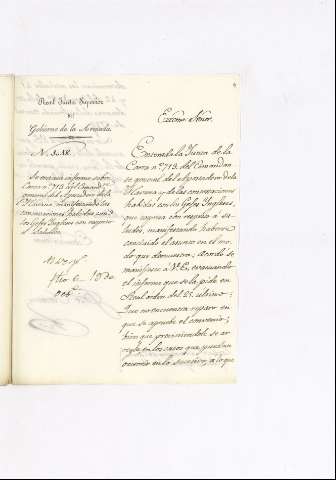 Real Junta Superior
del
Gobierno de la Armada.
N. 
Se evacua informe sobre
Carta n.º 713 del Comandte
general del Apostadero de la
Habana
contestaciones habidas con los
Gefes Ingleses con respecto
á saludos.
Excmo Señor.
Enterada la Junta de la
Carta n.º 713. del Comandan-
te general del Apostadero de la
Habana y de las contestaciones
habidas con los Gefes Ingleses,
que con respeto á sa-
ludos, manifestando haberse
concluido el asunto en el mo-
do que demuestra; acordó se
manifieste á V.E., evacuando
el informe que se le pide en
Real orden del 25 ultimo:
Que no encuentra reparo en
que se apruebe el convenio;
bien que previniendole se ar-
regle en los casos que puedan
ocurrir en lo sucesivo, á lo que